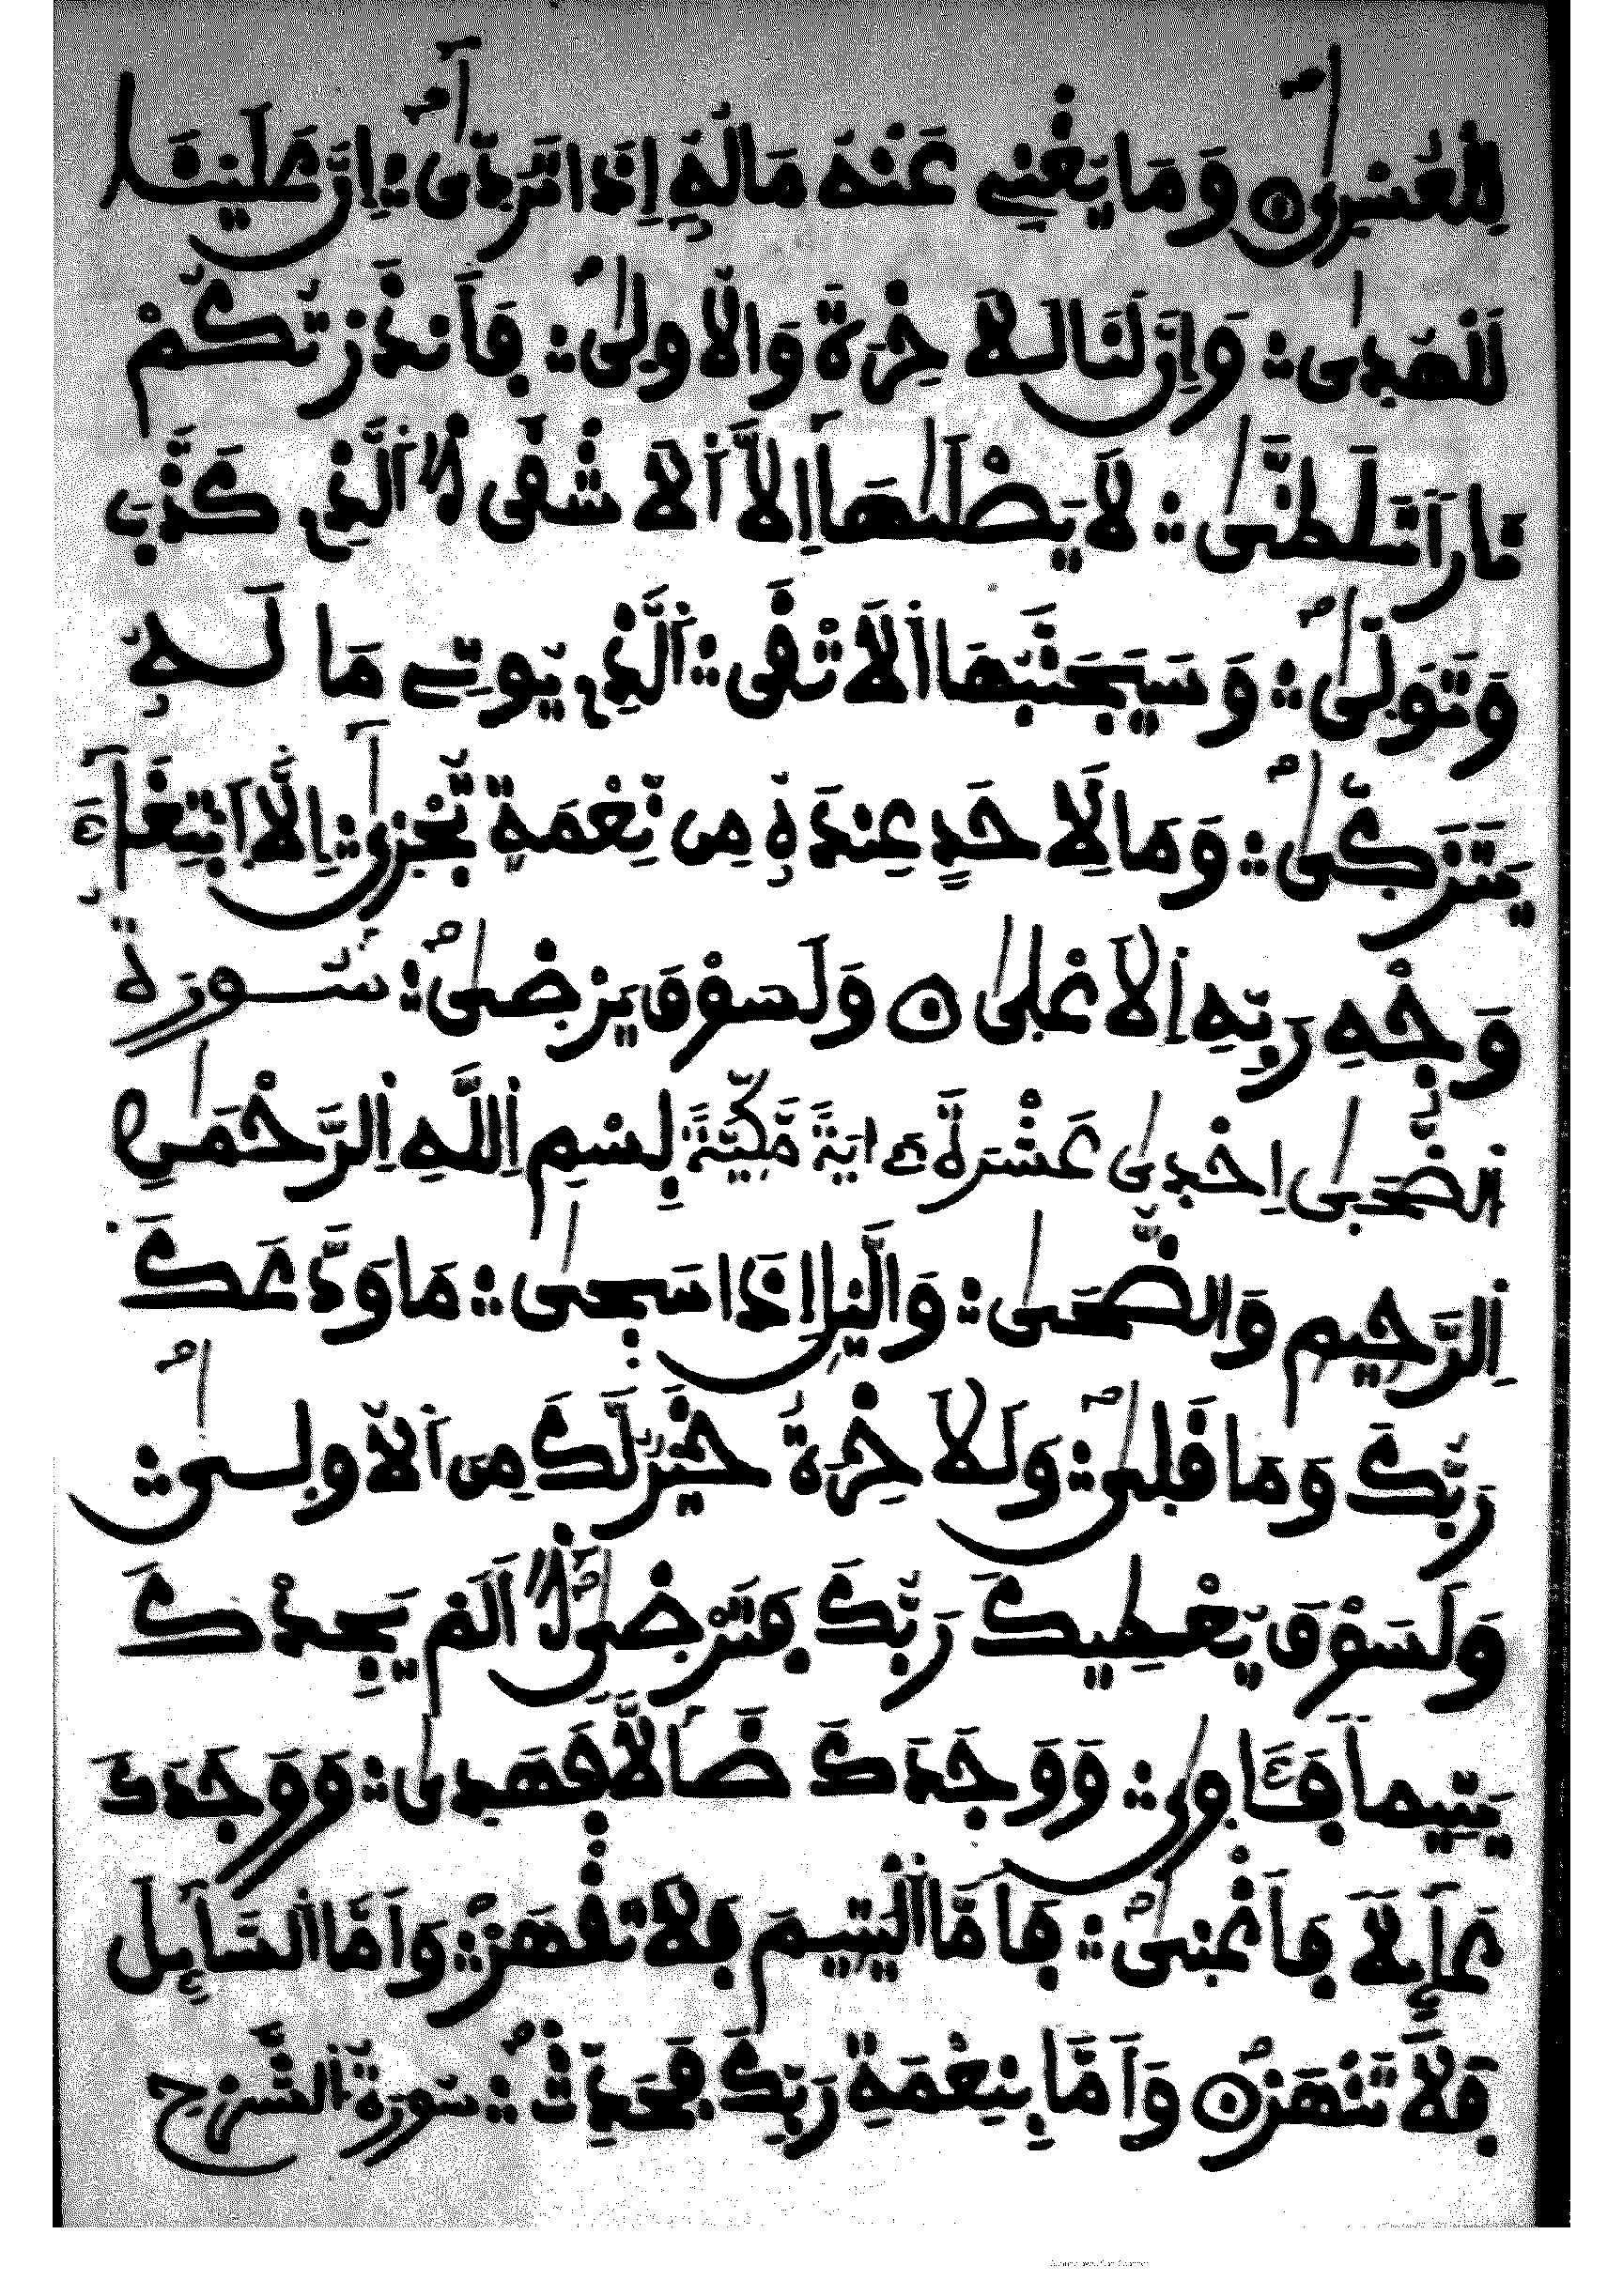 لِلْعُسْرٰى وَمَا يُغْنِے عَنْهُ مَالُهُۥٓ إِذَا تَرَدّٰىٓ إِنَّ عَلَيْنَا
لَلْهُدٰى وَإِنَّ لَنَا لَلَاخِرَةَ وَالُاولٰى فَأَنذَرْتُكُمْ
نَاراً تَلَظّٰى لَا يَصْلٰىهَآ إِلَّا اَلَاشْقَى اَلذِے كَذَّبَ
وَتَوَلّٰى وَسَيُجَنَّبُهَا اَلَاتْقَى اَلذِے يُوتِے مَا لَهُۥ
يَتَزَكّٰى وَمَا لِأَحَدٍ عِندَهُۥ مِن نِّعْمَةٍ تُجْزٰىٓ إِلَّا اَبْتِغَآءَ
وَجْهِ رَبِّهِ اِلَاعْلٰى وَلَسَوْفَ يَرْضٰى سُورَةُ
اُلضُّحٰى إِحْدٰى عَشْرَةَ ءَايَةً مَّكِّيَّةٌ بِسْمِ اِللَّهِ اِلرَّحْمٰنِ
اِلرَّحِيمِ وَالضُّحٰى وَالَّيْلِ إِذَا سَجٰى مَا وَدَّعَكَ
رَبُّكَ وَمَا قَلٰى وَلَلَاخِرَةُ خَيْرٌ لَّكَ مِنَ اَلُاولٰى
وَلَسَوْفَ يُعْطِيكَ رَبُّكَ فَتَرْضٰىٓ أَلَمْ يَجِدْكَ
يَتِيماً فَـَٔاوٰى وَوَجَدَكَ ضَآلّاً فَهَدٰى وَوَجَدَكَ
عَآئِلاً فَأَغْنٰى فَأَمَّا اَلْيَتِيمَ فَلَا تَقْهَرْ وَأَمَّا اَلسَّآئِلَ
فَلَا تَنْهَرْ وَأَمَّا بِنِعْمَةِ رَبِّكَ فَحَدِّثْ سُورَةُ اُلشَّرْحِ